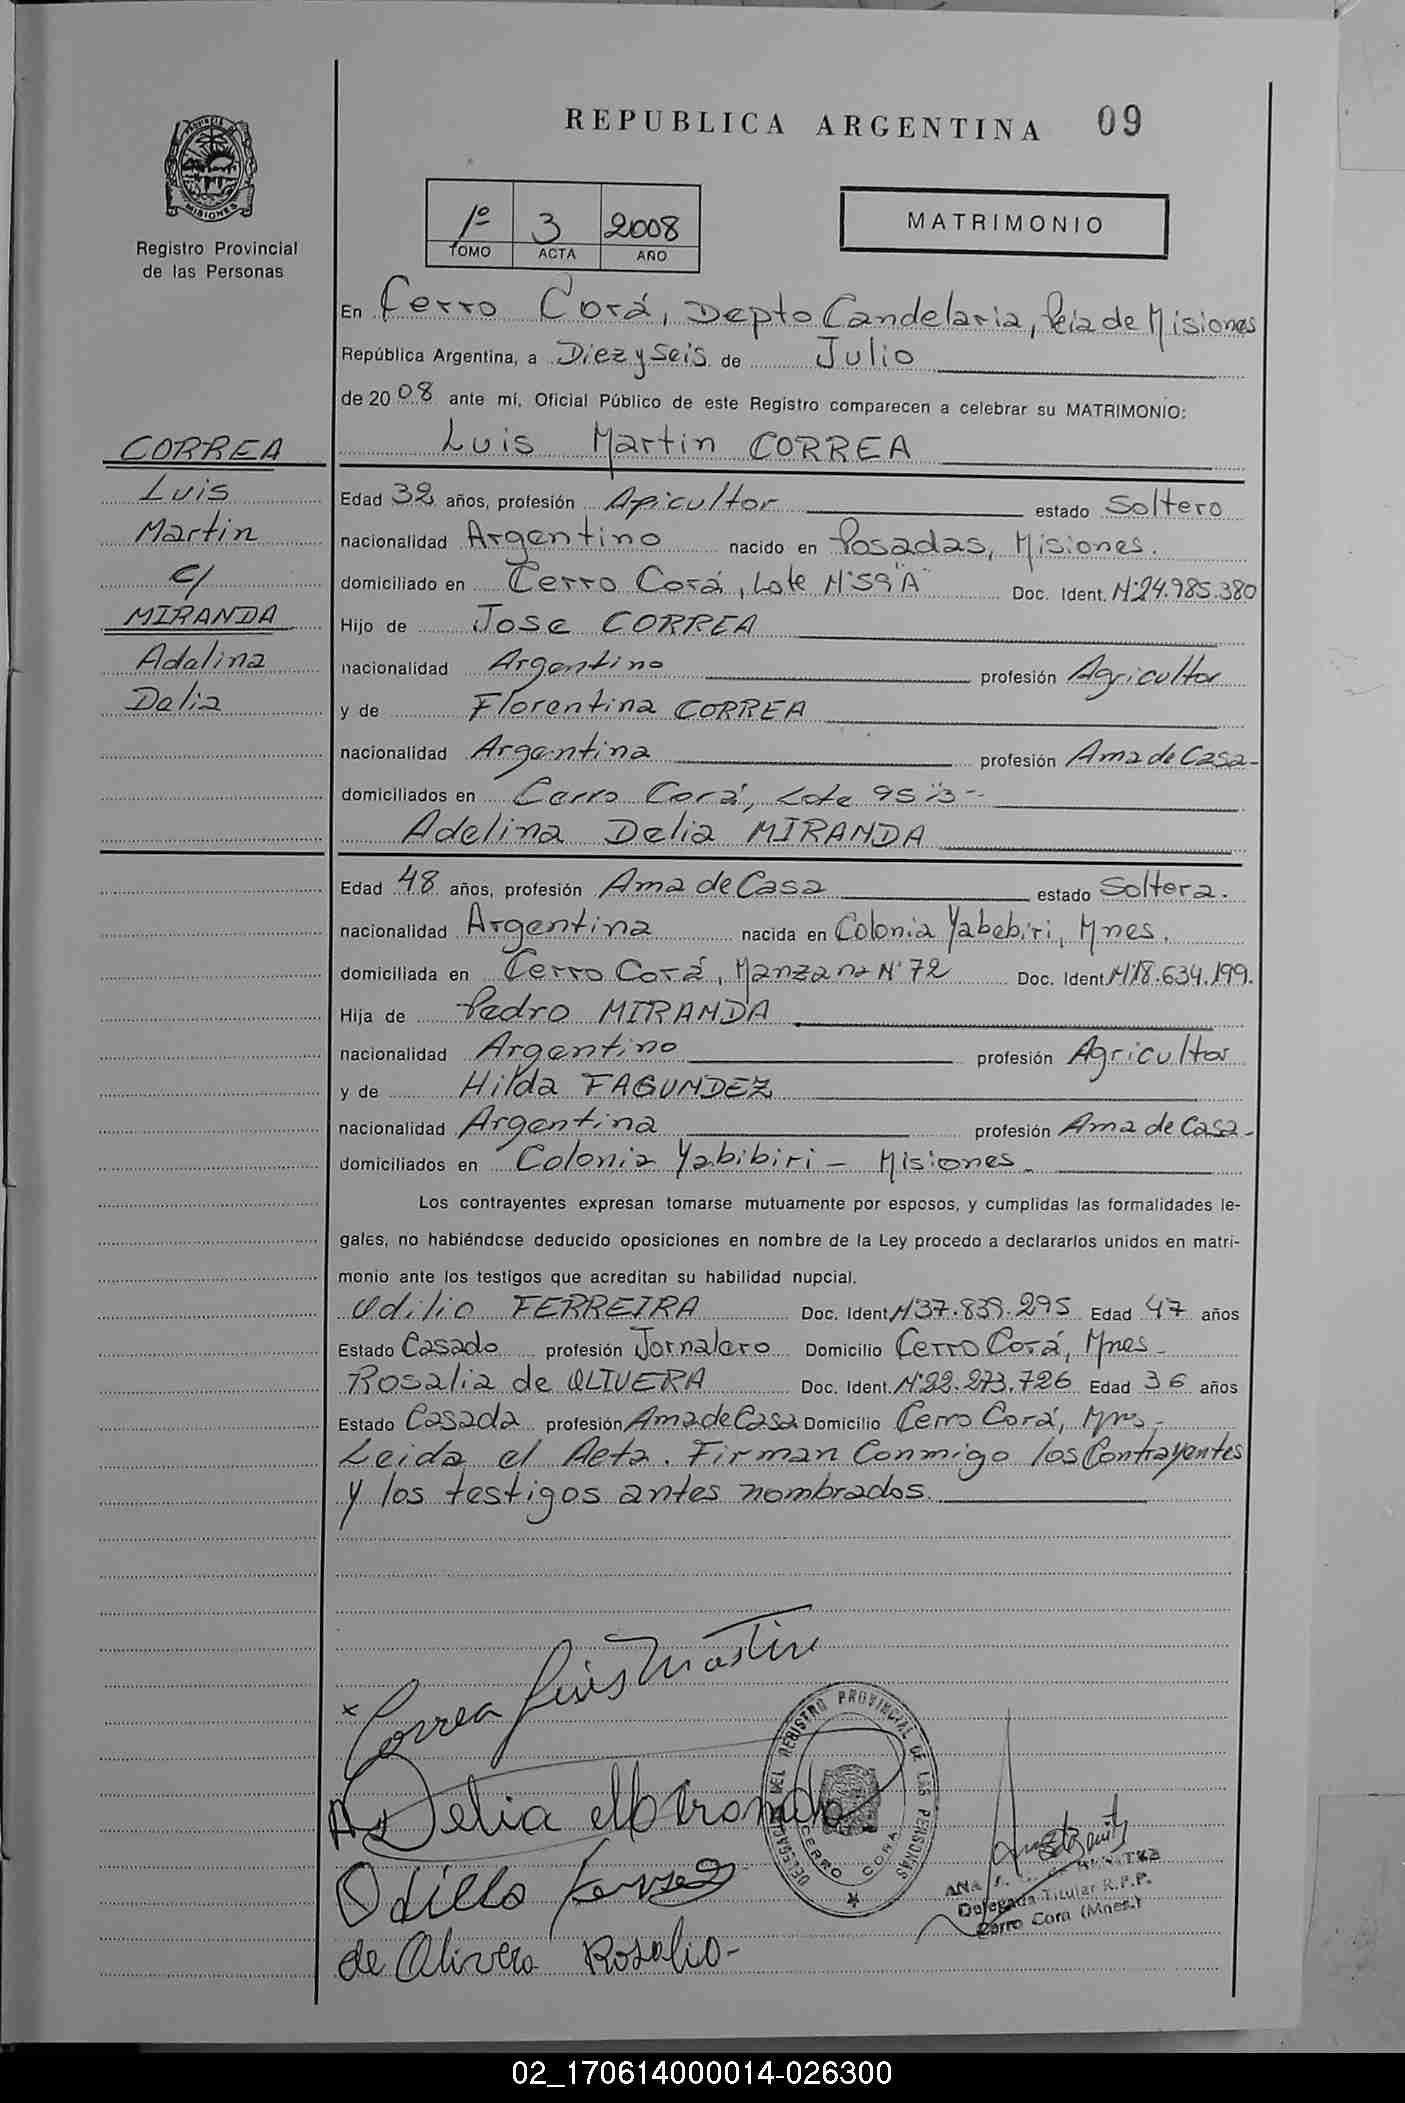 REPUBLICA ARGENTINA 09
PROVINCIA DE
MISIONES
Registro Provincial
de las Personas
1º 3 2008
TOMO ACTA AÑO
MATRIMONIO
En Cerro Corá, Depto Candelaria, Pcia de Misiones
República Argentina, a Diez y Seis de Julio
de 2008 ante mí, Oficial Público de este Registro comparecen a celebrar su MATRIMONIO:
Luis Martin CORREA
CORREA
Luis
Martin
c/
MIRANDA
Adalina
Delia
Edad 32 años, profesión Apicultor estado Soltero
nacionalidad Argentino nacido en Posadas, Misiones.
domiciliado en Cerro Corá, Lote Nº 59 "A" Doc. Ident. Nº 24.985.380
Hijo de Jose CORREA
nacionalidad Argentino profesión Agricultor
y de Florentina CORREA
nacionalidad Argentina profesión Ama de Casa-
domiciliados en Cerro Corá, Lote 95
Adelina Delia MIRANDA
Edad 48 años, profesión Ama de Casa estado Soltera.
nacionalidad Argentina nacida en Colonia Yabebiri, Mnes.
domiciliada en Cerro Corá, Manzana Nº 72 Doc. Ident Nº 18.634.199.
Hija de Pedro MIRANDA
nacionalidad Argentino profesión Agricultor
y de Hilda FAGUNDEZ
nacionalidad Argentina profesión Ama de Casa-
domiciliados en Colonia Yabibiri - Misiones-
Los contrayentes expresan tomarse mutuamente por esposos, y cumplidas las formalidades le-
gales, no habiéndose deducido oposiciones en nombre de la Ley procedo a declararlos unidos en matri-
monio ante los testigos que acreditan su habilidad nupcial.
Odilio FERREIRA Doc. Ident. Nº 37.839.295 Edad 47 años
Estado Casado profesión Jornalero Domicilio Cerro Corá, Mnes-
Rosalia de OLIVERA Doc. Ident. Nº 22.273.726 Edad 36 años
Estado Casada profesión Ama de Casa Domicilio Cerro Corá, Mnes-
Leida el Acta. Firman Conmigo los Contrayentes
y los testigos antes nombrados.
x Correa Luis Martin
A Delia Miranda
DELEGACION DEL REGISTRO PROVINCIAL DE LAS PERSONAS
CERRO CORA
ANA
Delegada Titular R.P.P.
Cerro Cora (Mnes.)
Odilio
de Olivera Rosalia-
02_170614000014-026300